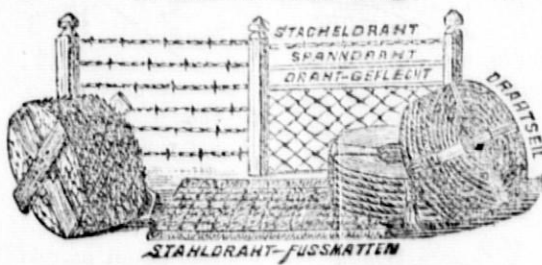 STACHELDRAHT
SPANNDRAHT
DRAHT-GEFLECHT
DRAHTSEIL
STAHLDRAHT-FUSSMATTEN